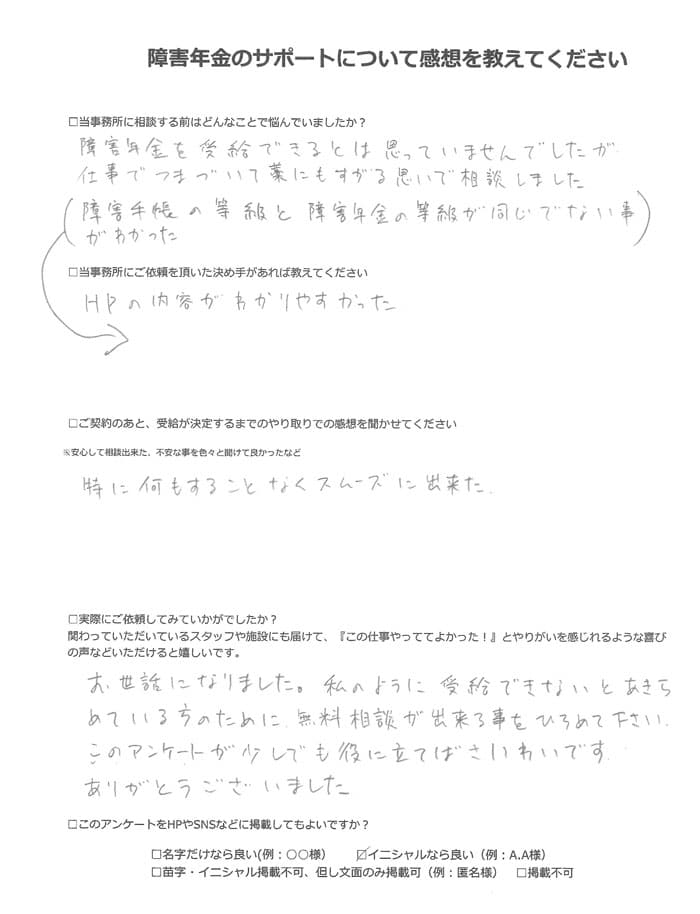 障害年金のサポートについて感想を教えてください
□当事務所に相談する前はどんなことで悩んでいましたか？
障害年金を受給できるとは思っていませんでしたが
仕事でつまづいて藁にもすがる思いで相談しました
(障害手帳の等級と障害年金の等級が同じでない事
がわかった)
□当事務所にご依頼を頂いた決め手があれば教えてください
HPの内容がわかりやすかった
□ご契約のあと、受給が決定するまでのやり取りでの感想を聞かせてください
※安心して相談出来た、不安な事を色々と聞けて良かったなど
特に何もすることなくスムーズに出来た.
□実際にご依頼してみていかがでしたか？
関わっていただいているスタッフや施設にも届けて、『この仕事やっててよかった！』とやりがいを感じれるような喜び
の声などいただけると嬉しいです。
お世話になりました。私のように受給できないとあきら
めている方のために、無料相談が出来る事をひろめて下さい.
このアンケートが少しでも役に立てばさいわいです.
ありがとうございました
□このアンケートをHPやSNSなどに掲載してもよいですか？
□名字だけなら良い(例：〇〇様) ☑イニシャルなら良い（例：A.A様）
□苗字・イニシャル掲載不可、但し文面のみ掲載可（例：匿名様） □掲載不可